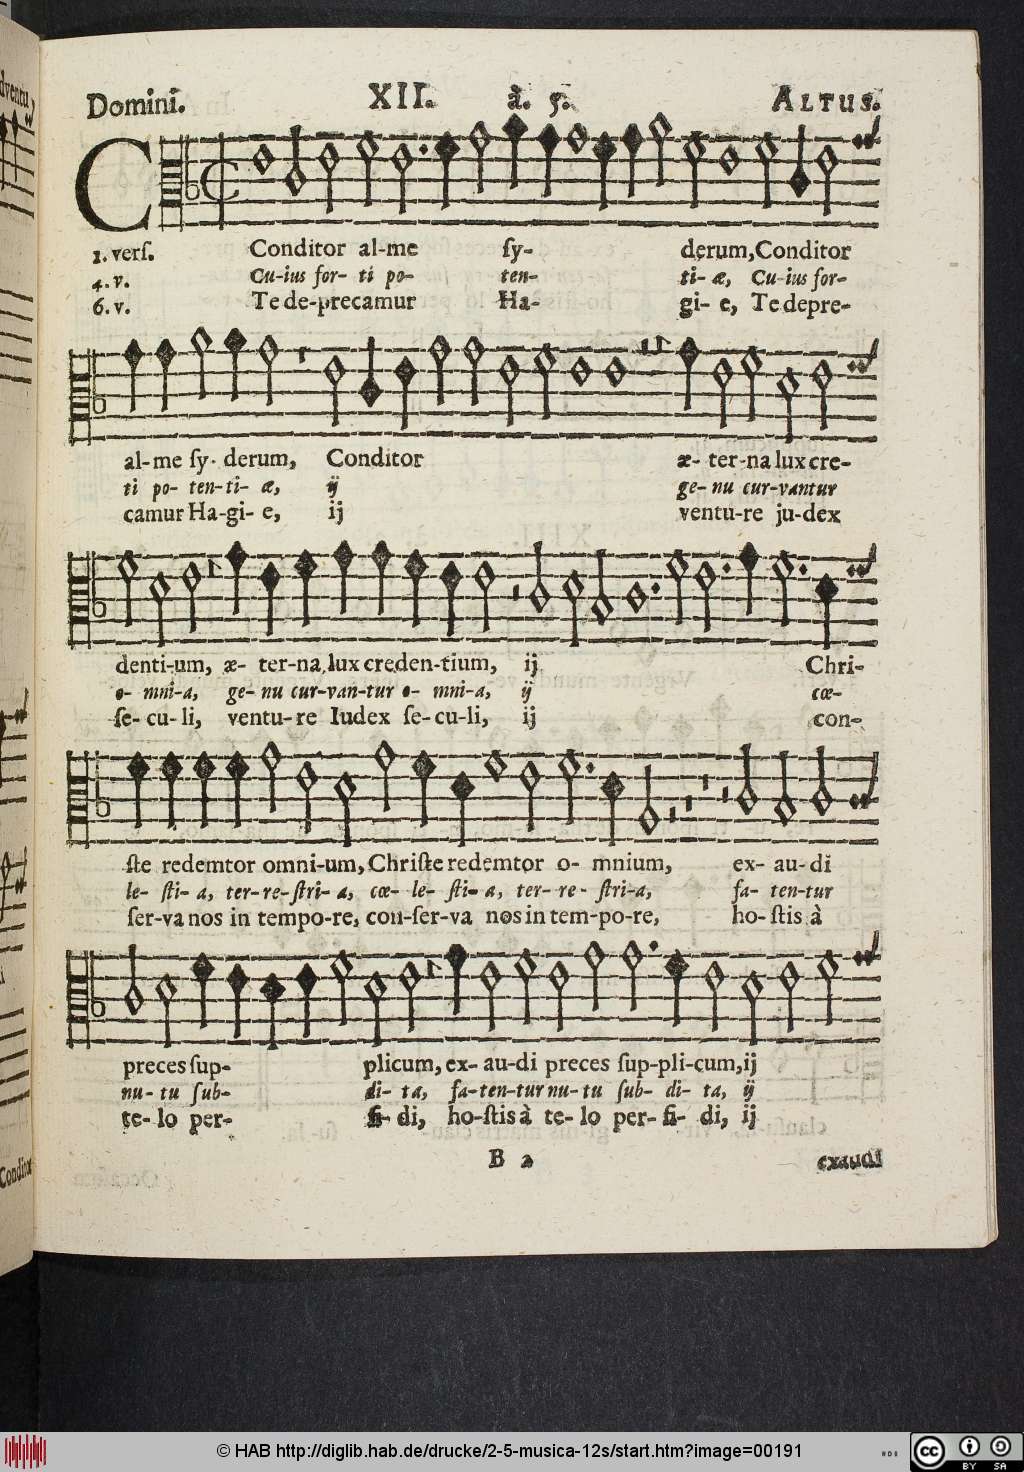 dventu
Domini. XII. à. 5. ALTUS.
1. vers. Conditor al-me sy- derum, Conditor
4. v. Cu-ius for- ti po- ten- ti- æ, Cu-ius for-
6. v. Te de-precamur Ha- gi- e, Te depre-
al-me sy- derum, Conditor æ- ter-na lux cre-
ti po- ten-ti- æ, ij ge- nu cur-vantur
camur Ha-gi- e, ij ventu-re ju-dex
denti-um, æ- ter-na lux creden-tium, ij Chri-
o- mni-a, ge- nu cur-van-tur o- mni-a, ij cœ-
se- cu-li, ventu-re Iudex se-cu-li, ij con-
ste redemtor omni-um, Christe redemtor o- mnium, ex- au-di
le- sti- a, ter-re-stri- a, cœ- le- sti- a, ter-re- stri-a, fa- ten-tur
ser-va nos in tempo-re, con-ser-va nos in tem-po-re, ho-stis à
preces sup- plicum, ex- au-di preces sup-pli-cum, ij
nu- tu sub- di- ta, fa-ten-tur nu- tu sub- di- ta, ij
te- lo per- fi- di, ho-stis à te- lo per- fi- di, ij
B 2 exaudi
Conditor
© HAB http://diglib.hab.de/drucke/2-5-musica-12s/start.htm?image=00191
CC BY SA